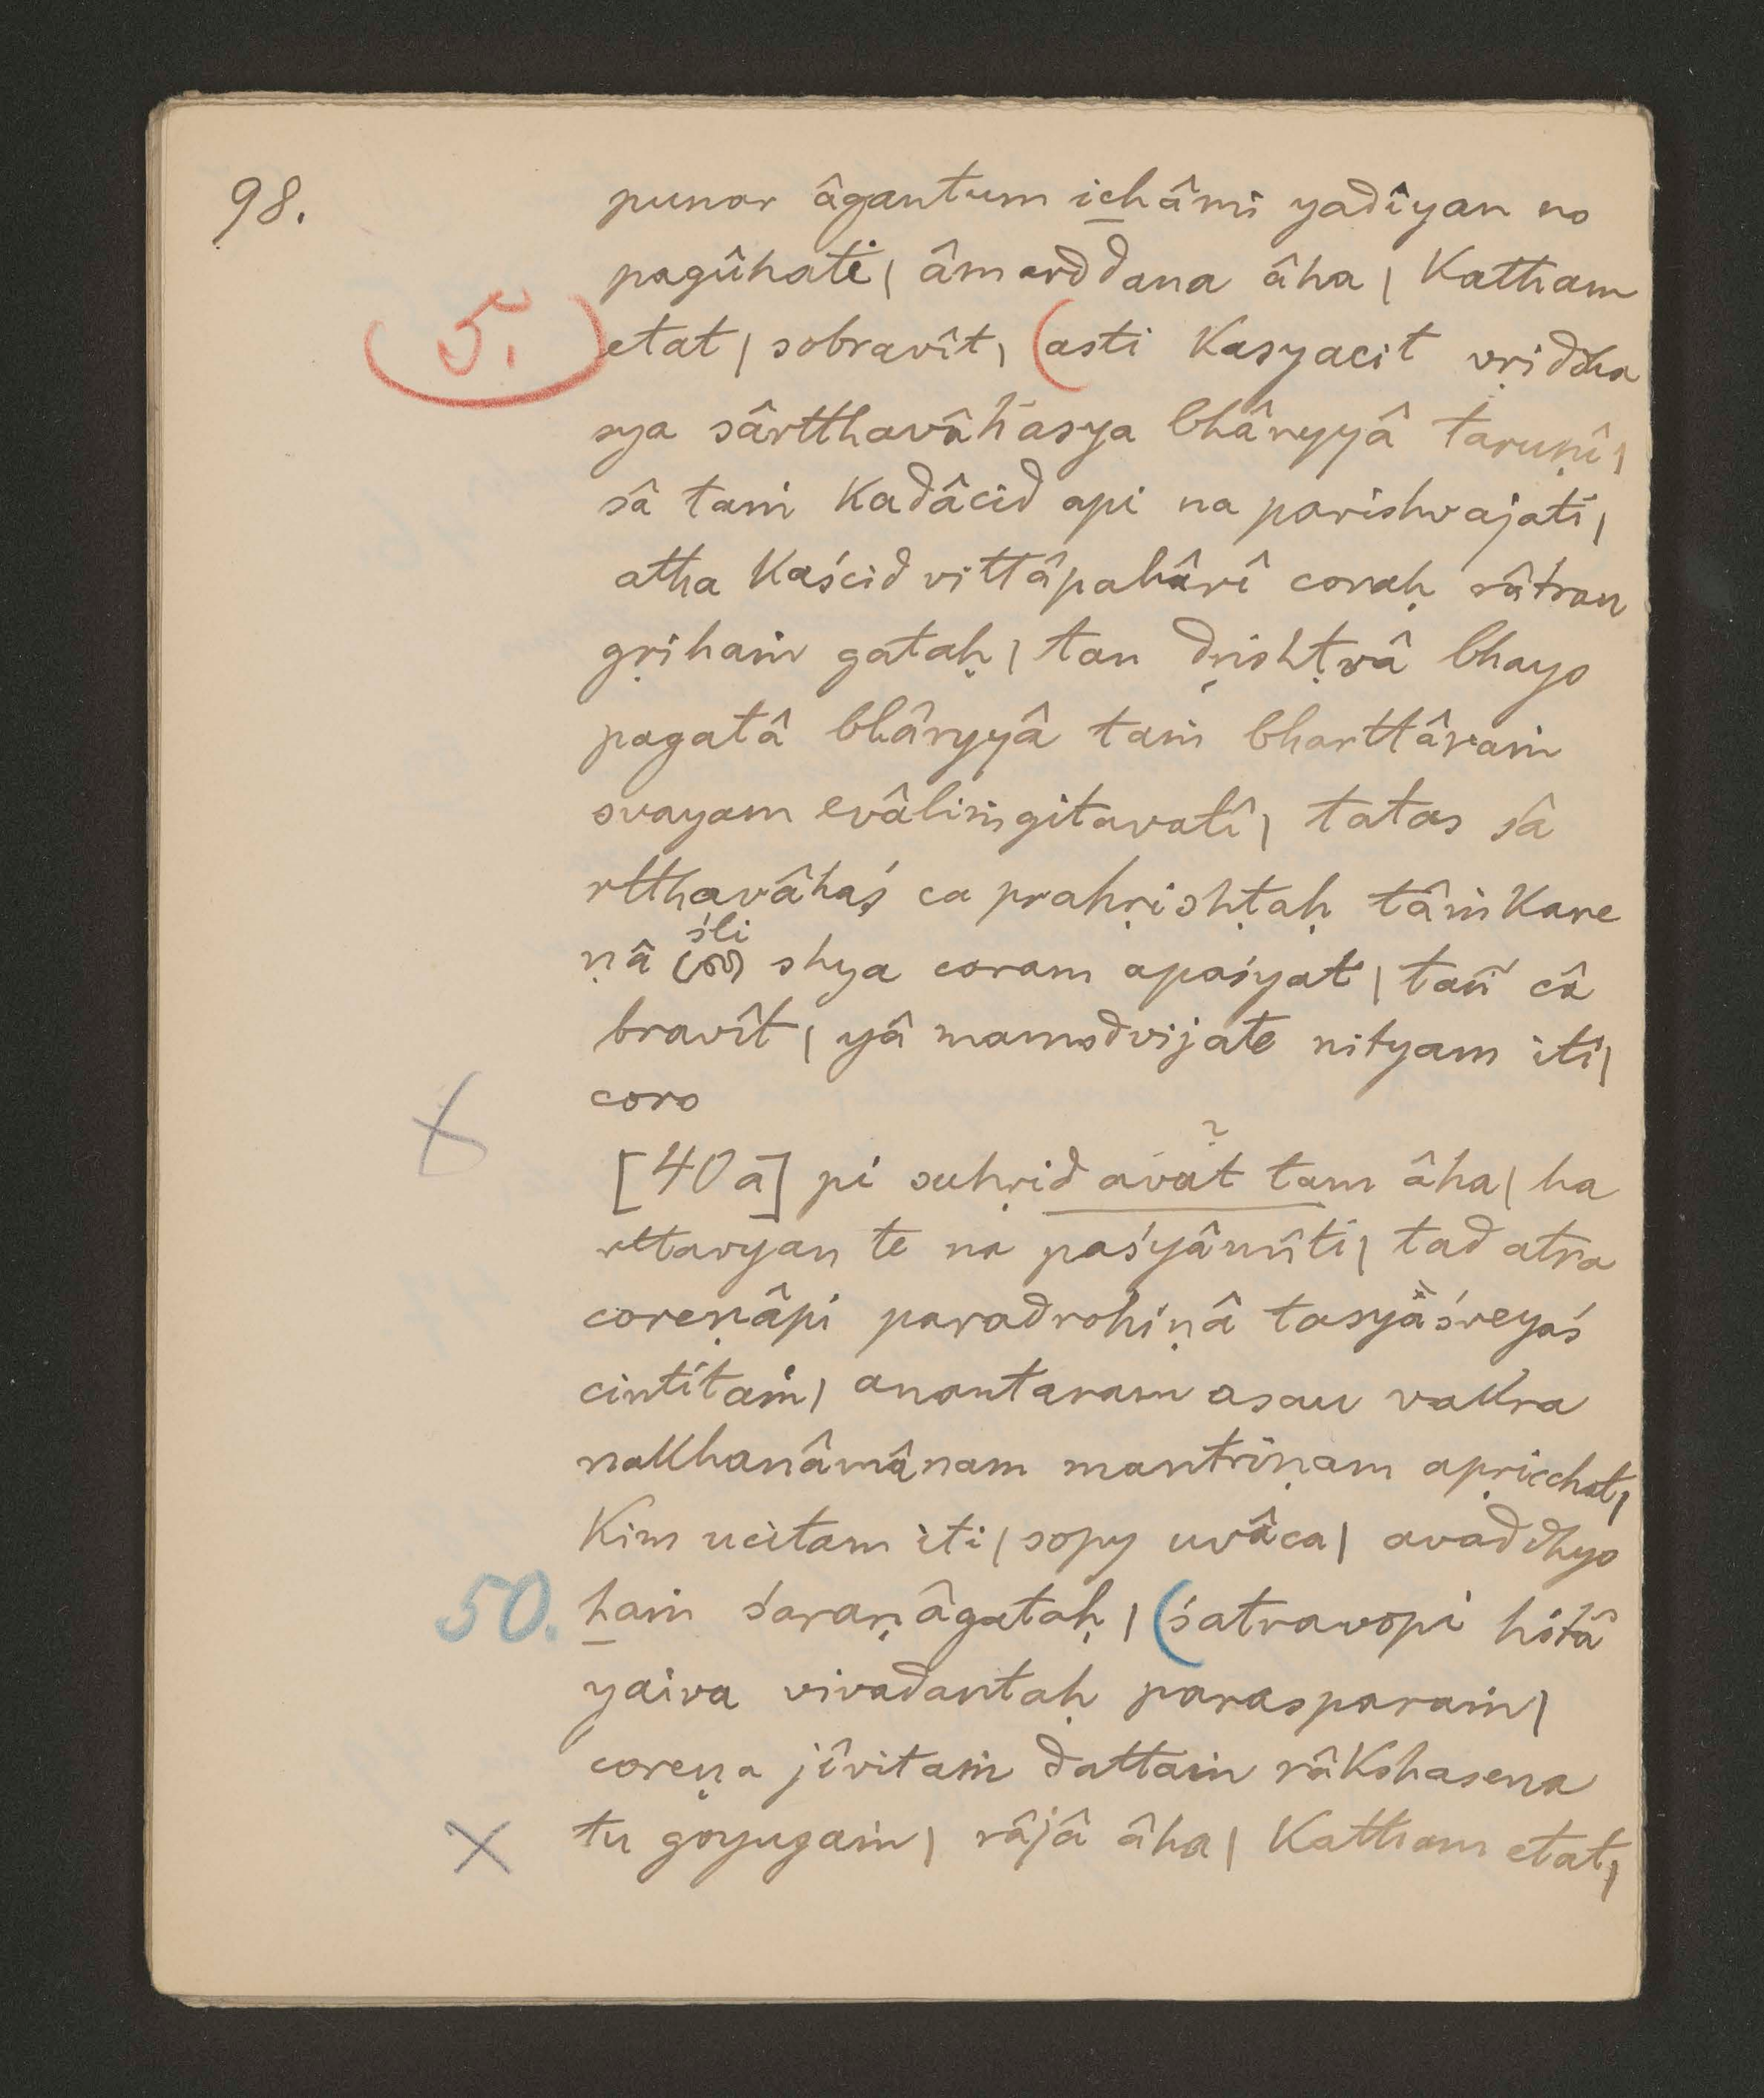 98.
punar âgantum ichâmi yadîyan no
pagûhati | âmarddana âha | Katham
5. etat | sobravît | (asti Kasyacit vṛiddha
sya sârtthavâhasya bhâryyâ taruṇî |
sâ taṁ Kadâcid api na parishvajati |
atha Kaścid vittâpahârî coraḥ râtrau
gṛihaṁ gataḥ | tan dṛishṭvâ bhayo
pagatâ bhâryyâ taṁ bharttâraṁ
svayam evâliṁgitavatî | tatas sâ
rtthavâhaś ca prahṛishṭaḥ tâṁ Kare
śli
ṇâ shya coram apaśyat | tañ câ
bravît | yâ mamodvijate nityam iti |
coro
[40a] pi suhṛid avat tam âha | ha
?
rttavyan te na paśyâmîti | tad atra
coreṇâpi paradrohiṇâ tasyâśreyaś
cintitaṁ | anantaram asau vakra
nakhanâmânam mantriṇam apṛicchat |
Kim ucitam iti | sopy uvâca | avaddhyo
50. haṁ śaraṇâgataḥ | (śatravopi hitâ
yaiva vivadantaḥ parasparaṁ |
coreṇa jîvitaṁ dattaṁ râkshasena
tu goyugaṁ | râjâ âha | Katham etat |